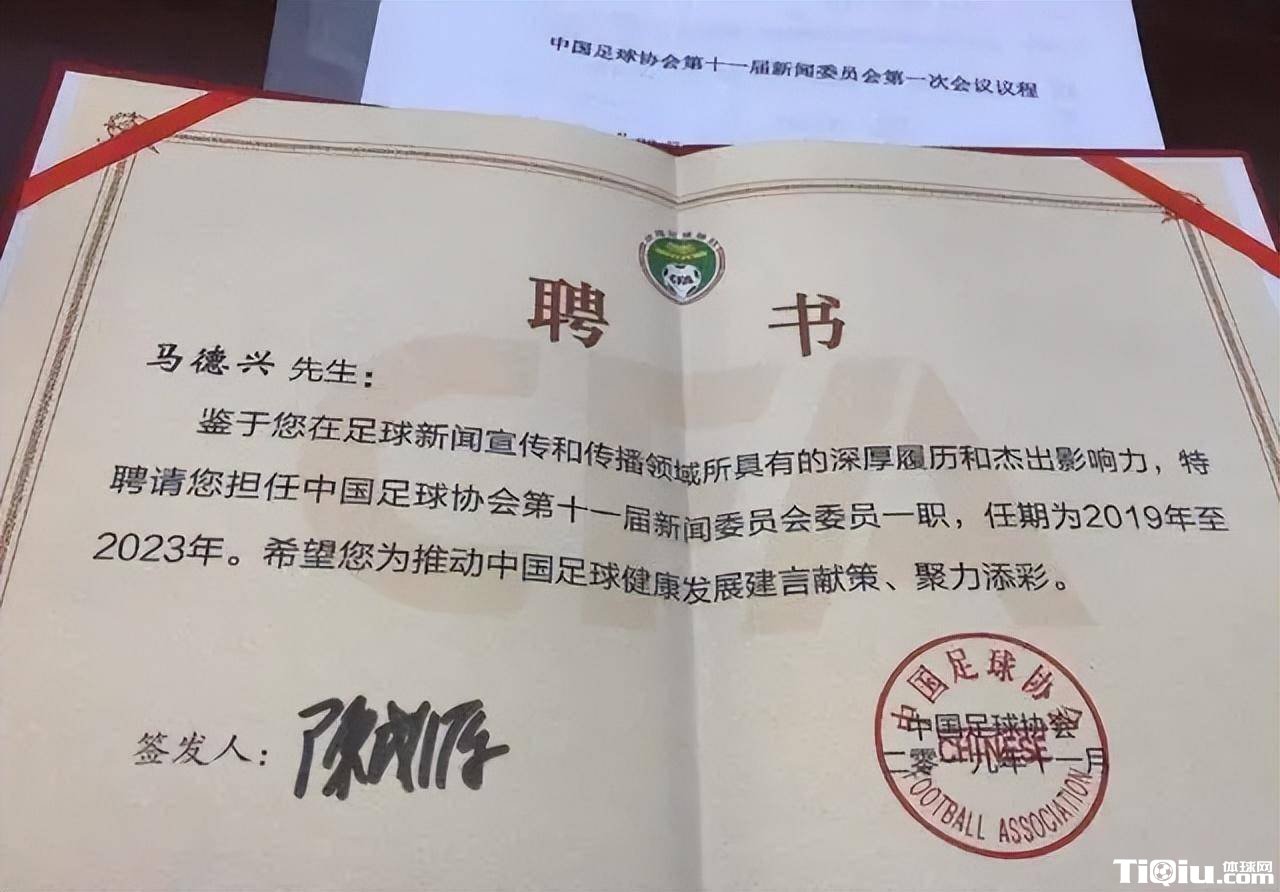 中国足球协会第十一届新闻委员会第一次会议议程
CFA
聘 书
马德兴 先生:
鉴于您在足球新闻宣传和传播领域所具有的深厚履历和杰出影响力,特
聘请您担任中国足球协会第十一届新闻委员会委员一职,任期为2019年至
2023年。希望您为推动中国足球健康发展建言献策、聚力添彩。
签发人:
中国足球协会
中国足球协会
CHINESE
二零一九年十一月
FOOTBALL ASSOCIATION
TiQiu.com
体球网